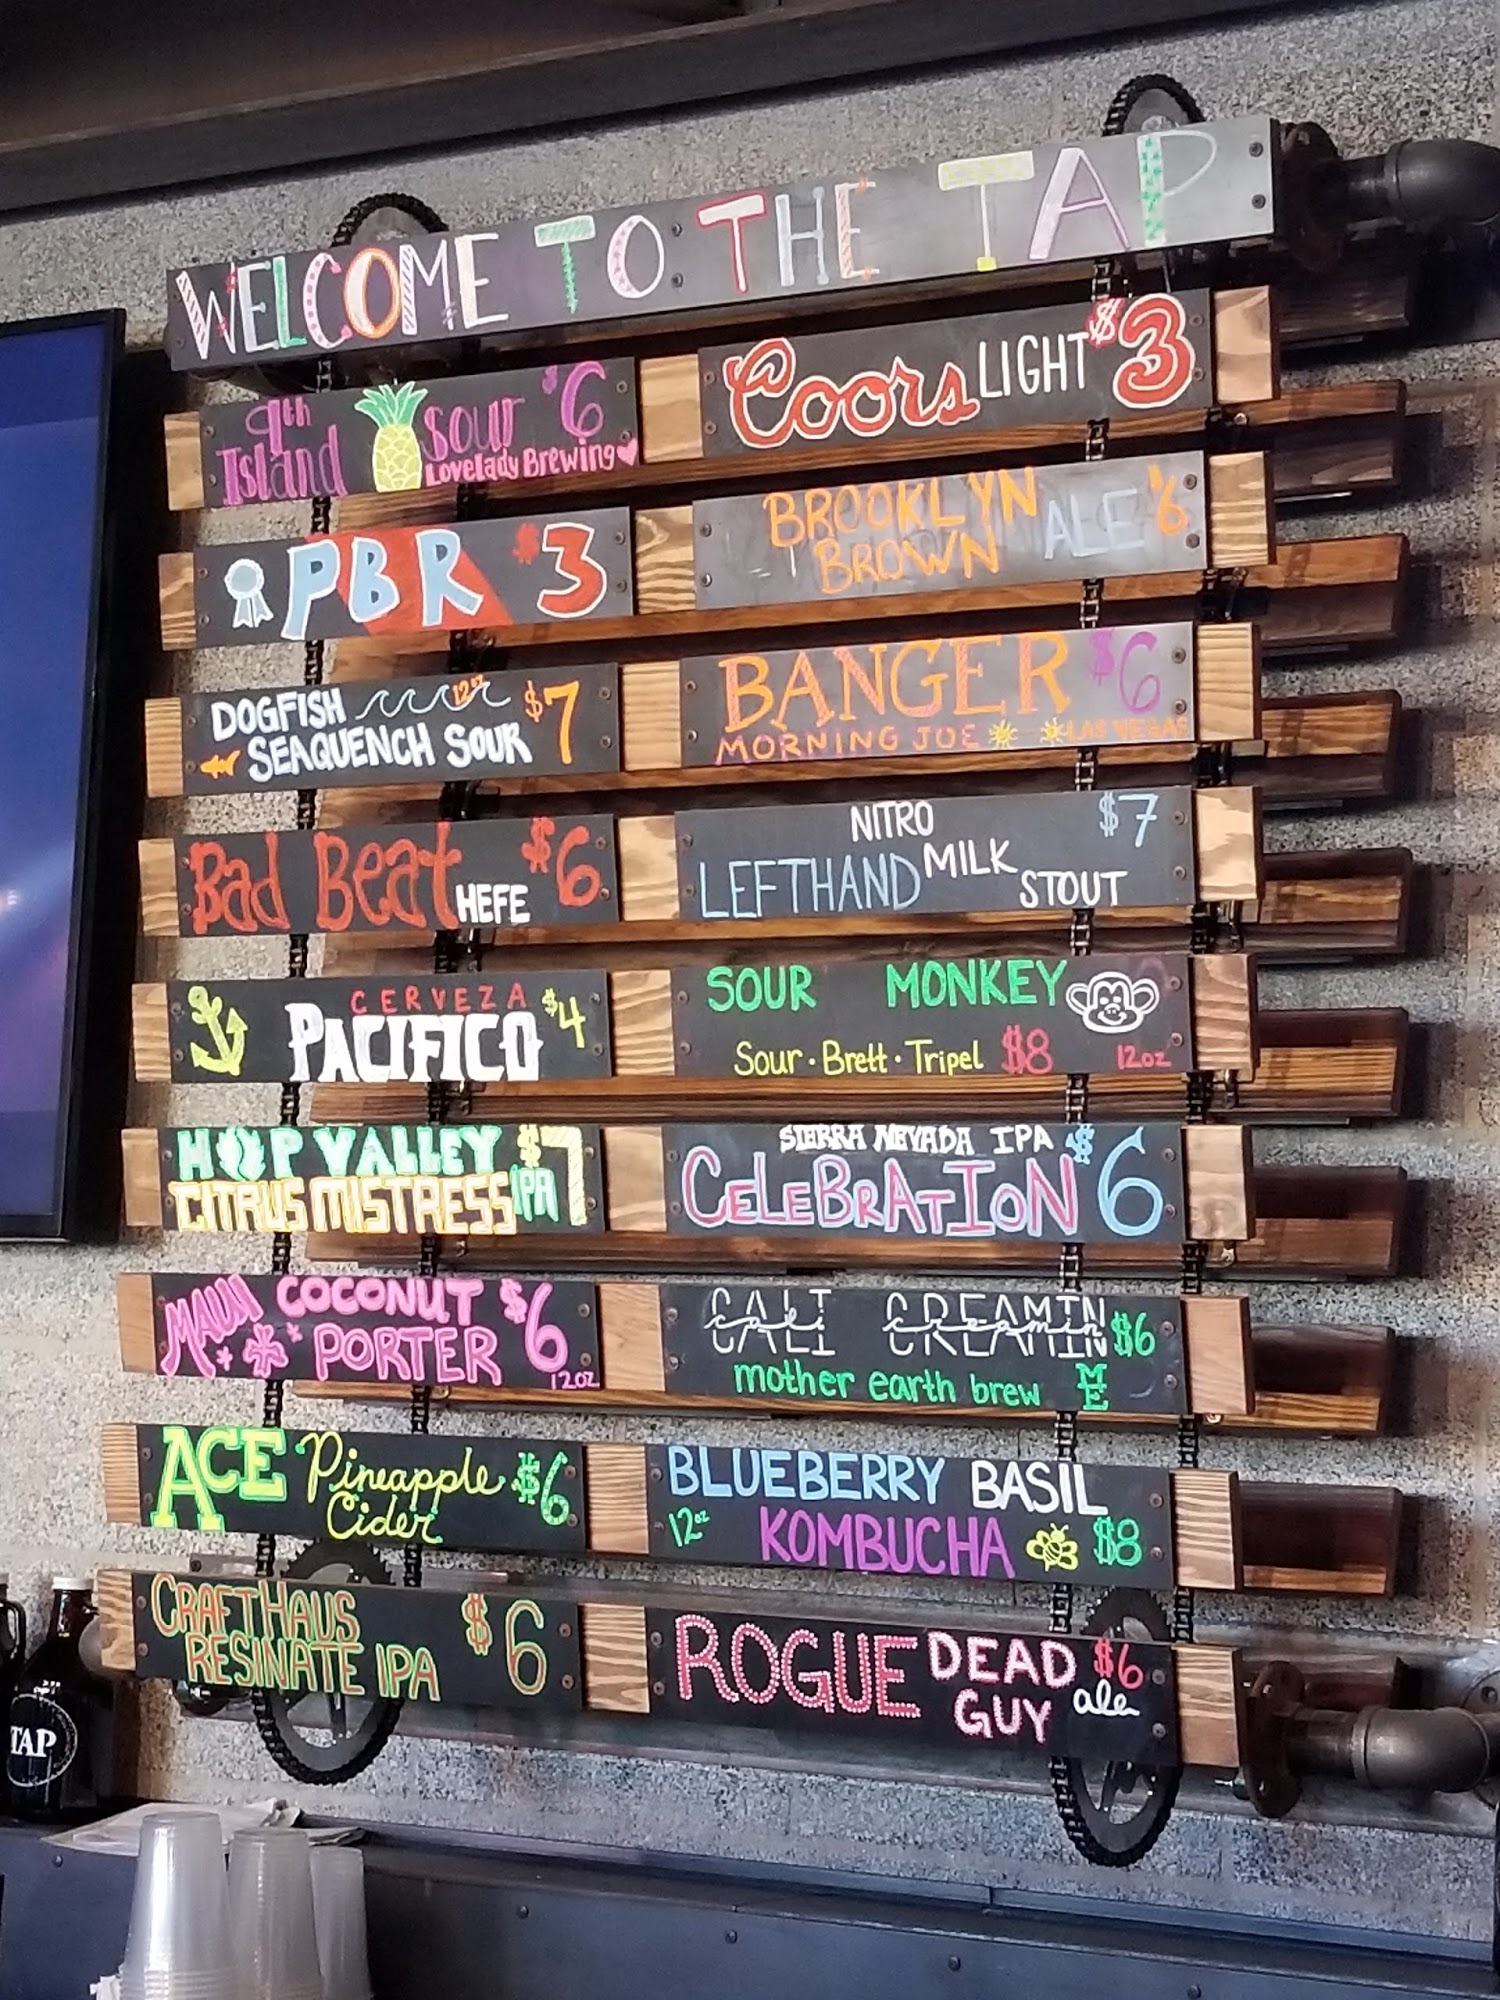 WELCOME TO THE TAP
9th Island Sour $6
Lovelady Brewing
PBR $3
DOGFISH 12oz $7
SEAQUENCH SOUR
Bad Beat HEFE $6
CERVEZA $4
PACIFICO
HOP VALLEY $7
CITRUS MISTRESS IPA
MAUI COCONUT $6
PORTER 12oz
ACE Pineapple $6
Cider
CRAFTHAUS $6
RESINATE IPA
Coors LIGHT $3
BROOKLYN $6
BROWN ALE
BANGER $6
MORNING JOE LAS VEGAS
NITRO $7
LEFTHAND MILK STOUT
SOUR MONKEY
Sour · Brett · Tripel $8 12oz
SIERRA NEVADA IPA $6
CELEBRATION
CALI CREAMIN $6
mother earth brew ME
BLUEBERRY BASIL
12oz KOMBUCHA $8
ROGUE DEAD $6
GUY ale
TAP